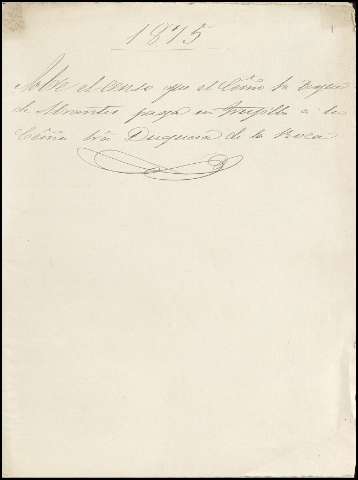 1875
Sobre el censo que el Exmo Sr Duque
de Abrantes paga en Trujillo a la
Exma Sra Duquesa de la Roca